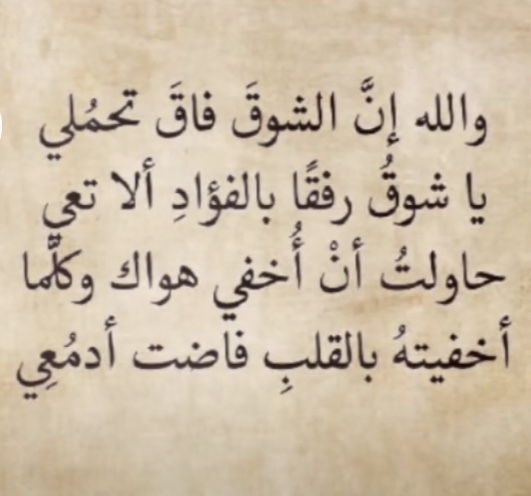 والله إنَّ الشوقَ فاقَ تحمُلي
يا شوقُ رفقًا بالفؤادِ ألا تعي
حاولتُ أنْ أُخفي هواك وكلَّما
أخفيتهُ بالقلبِ فاضت أدمُعِي